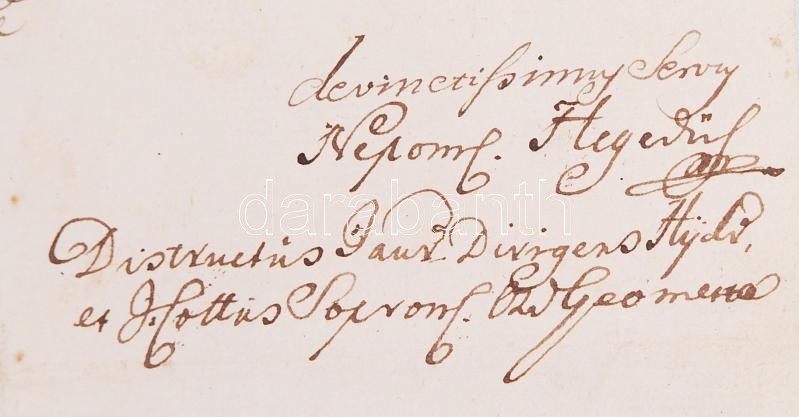 devinctissimus Servus
Nepom. Hegedűs
darabanth
Districtus Jaur. Dirigens Hydr.
et I. Cottus Sopron. Ord Geometra